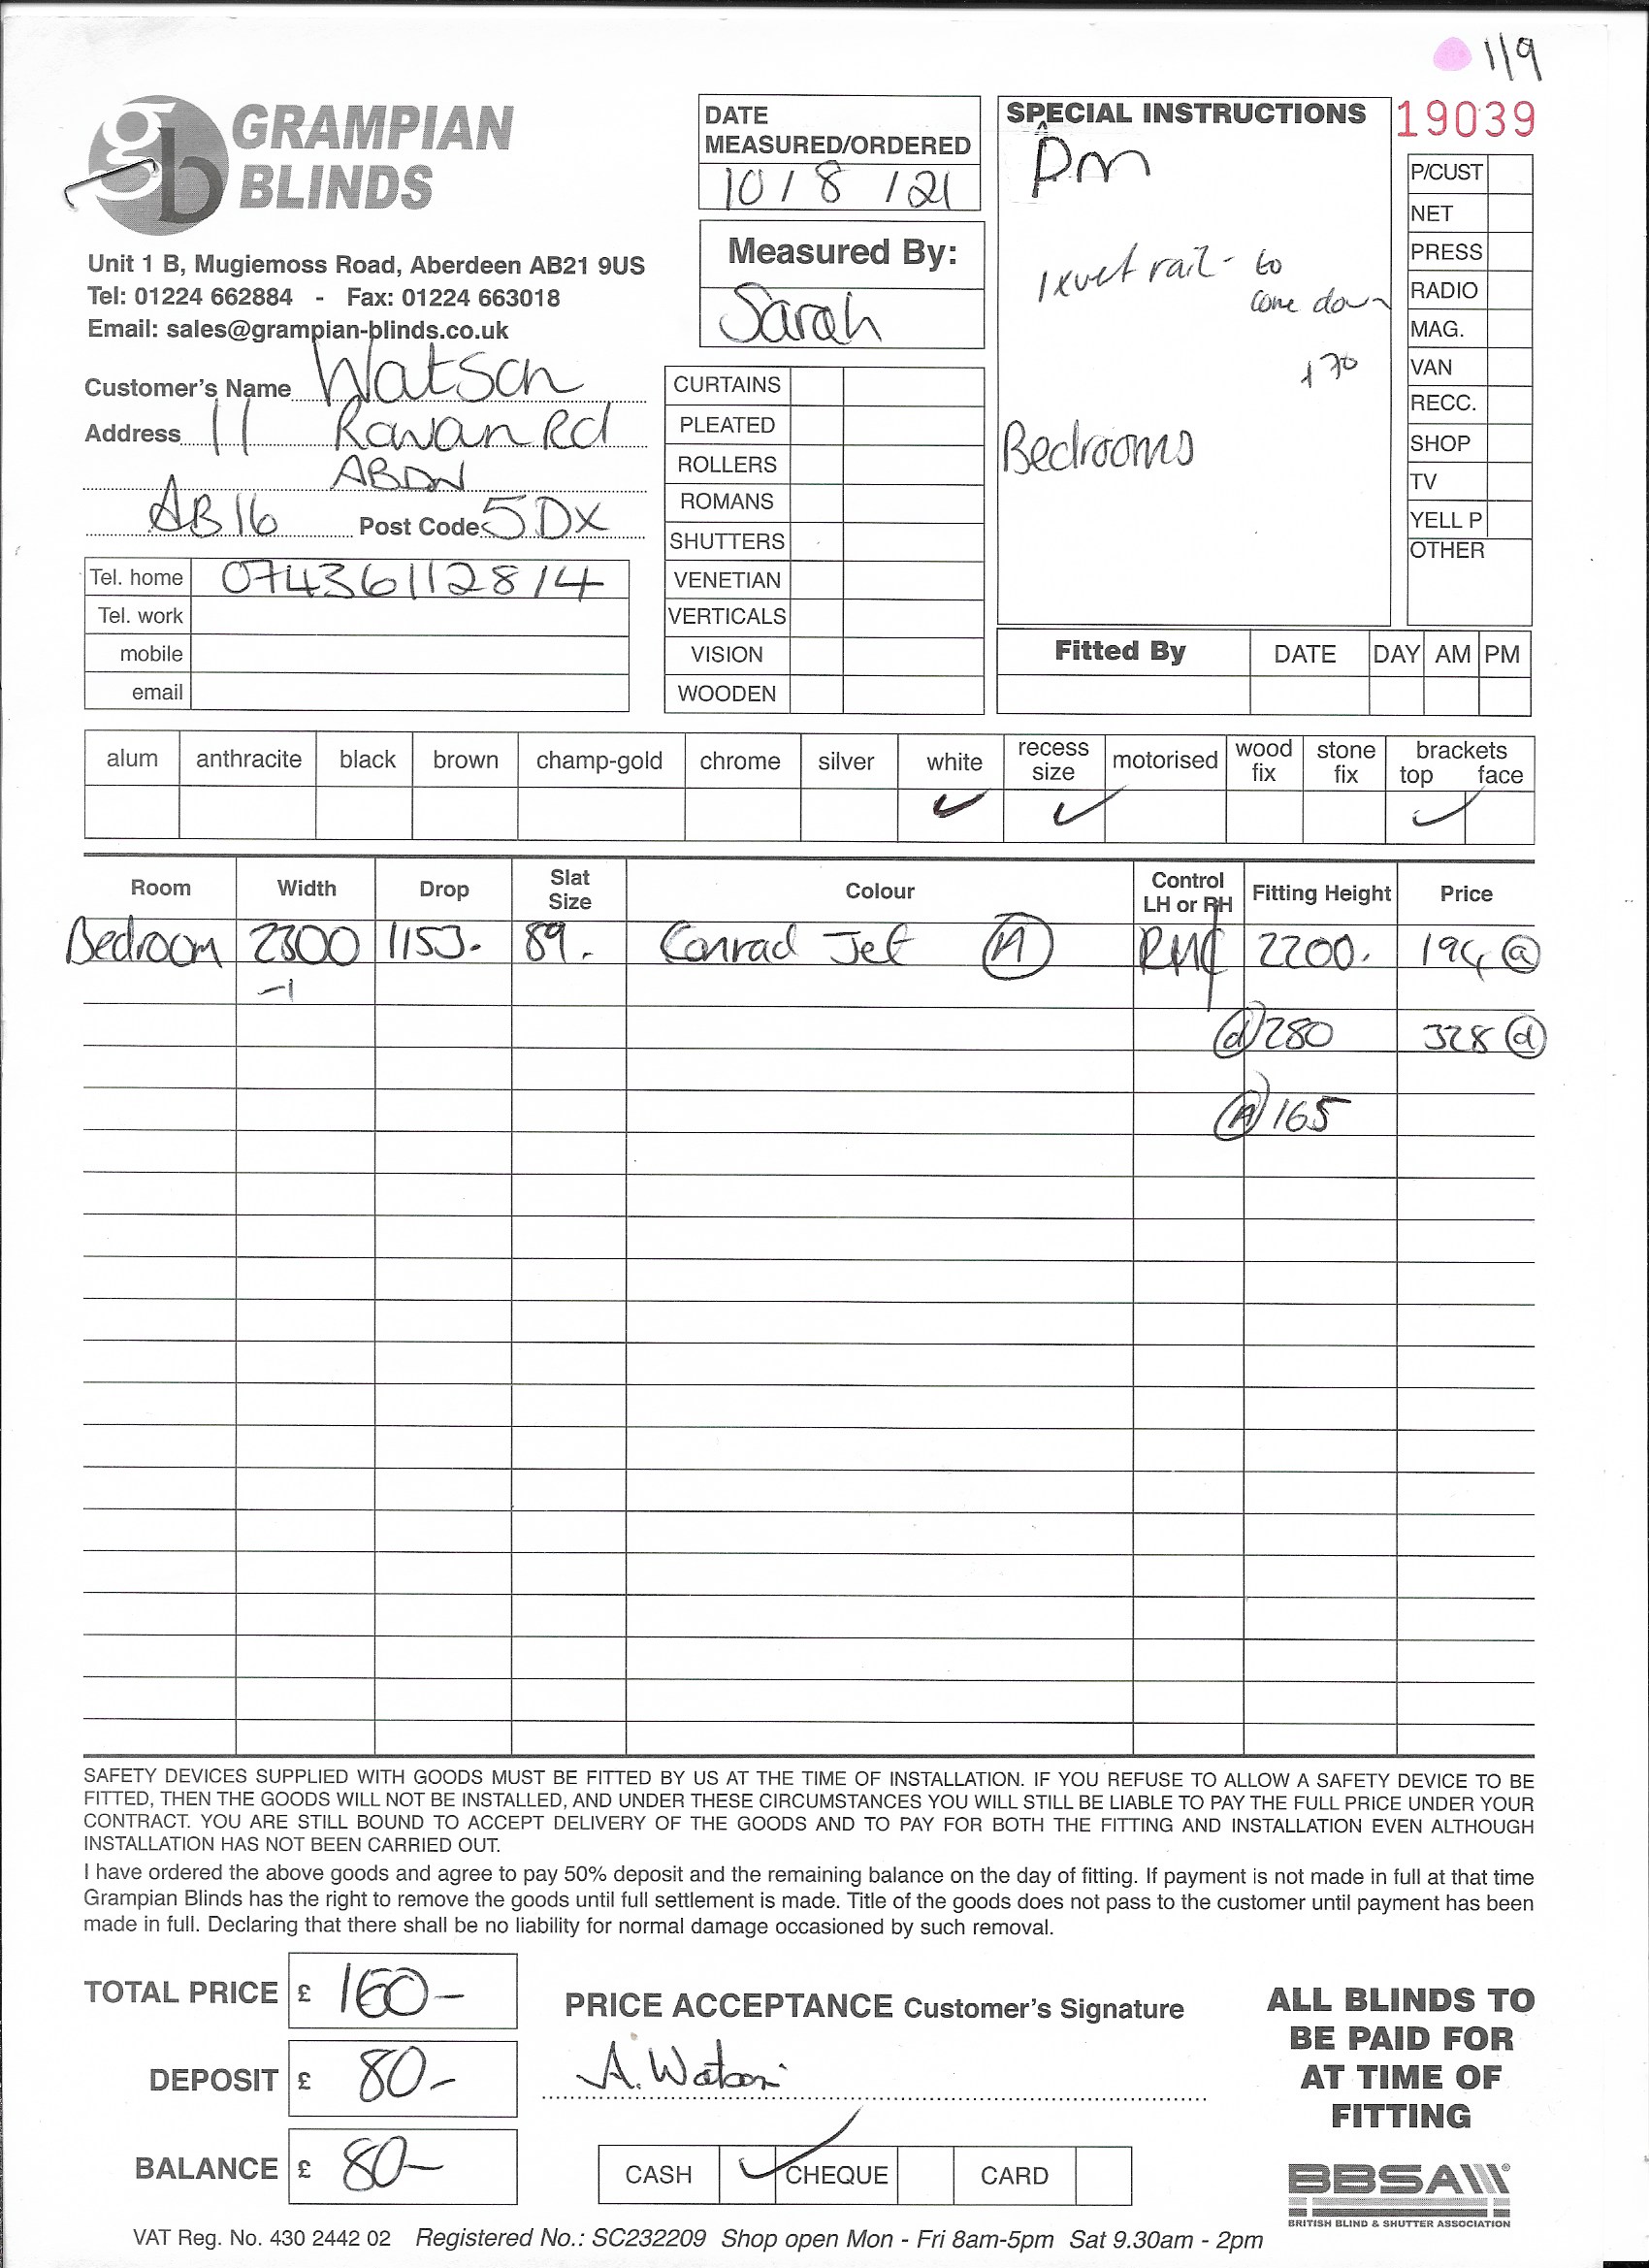 11/9
GRAMPIAN
BLINDS
Unit 1 B, Mugiemoss Road, Aberdeen AB21 9US
Tel: 01224 662884 - Fax: 01224 663018
Email: sales@grampian-blinds.co.uk
Customer's Name Watson
Address 11 Rowan Rd
ABDN
AB16 Post Code 5DX
Tel. home 07436112814
Tel. work
mobile
email
DATE
MEASURED/ORDERED
10 / 8 / 21
Measured By:
Sarah
CURTAINS
PLEATED
ROLLERS
ROMANS
SHUTTERS
VENETIAN
VERTICALS
VISION
WOODEN
SPECIAL INSTRUCTIONS
Pm
1 rail - to
come down
Bedrooms
19039
P/CUST
NET
PRESS
RADIO
MAG.
VAN
RECC.
SHOP
TV
YELL P
OTHER
Fitted By DATE DAY AM PM
alum anthracite black brown champ-gold chrome silver white recess size motorised wood fix stone fix brackets top face
Room Width Drop Slat Size Colour Control LH or RH Fitting Height Price
Bedroom 2300 1153. 89. Conrad Jet A 2200. 194 @
-1
d 280 328 d
A 165
SAFETY DEVICES SUPPLIED WITH GOODS MUST BE FITTED BY US AT THE TIME OF INSTALLATION. IF YOU REFUSE TO ALLOW A SAFETY DEVICE TO BE
FITTED, THEN THE GOODS WILL NOT BE INSTALLED, AND UNDER THESE CIRCUMSTANCES YOU WILL STILL BE LIABLE TO PAY THE FULL PRICE UNDER YOUR
CONTRACT. YOU ARE STILL BOUND TO ACCEPT DELIVERY OF THE GOODS AND TO PAY FOR BOTH THE FITTING AND INSTALLATION EVEN ALTHOUGH
INSTALLATION HAS NOT BEEN CARRIED OUT.
I have ordered the above goods and agree to pay 50% deposit and the remaining balance on the day of fitting. If payment is not made in full at that time
Grampian Blinds has the right to remove the goods until full settlement is made. Title of the goods does not pass to the customer until payment has been
made in full. Declaring that there shall be no liability for normal damage occasioned by such removal.
TOTAL PRICE £ 160-
DEPOSIT £ 80-
BALANCE £ 80-
PRICE ACCEPTANCE Customer's Signature
A. Watson
CASH CHEQUE CARD
ALL BLINDS TO
BE PAID FOR
AT TIME OF
FITTING
BBSA
BRITISH BLIND & SHUTTER ASSOCIATION
VAT Reg. No. 430 2442 02 Registered No.: SC232209 Shop open Mon - Fri 8am-5pm Sat 9.30am - 2pm